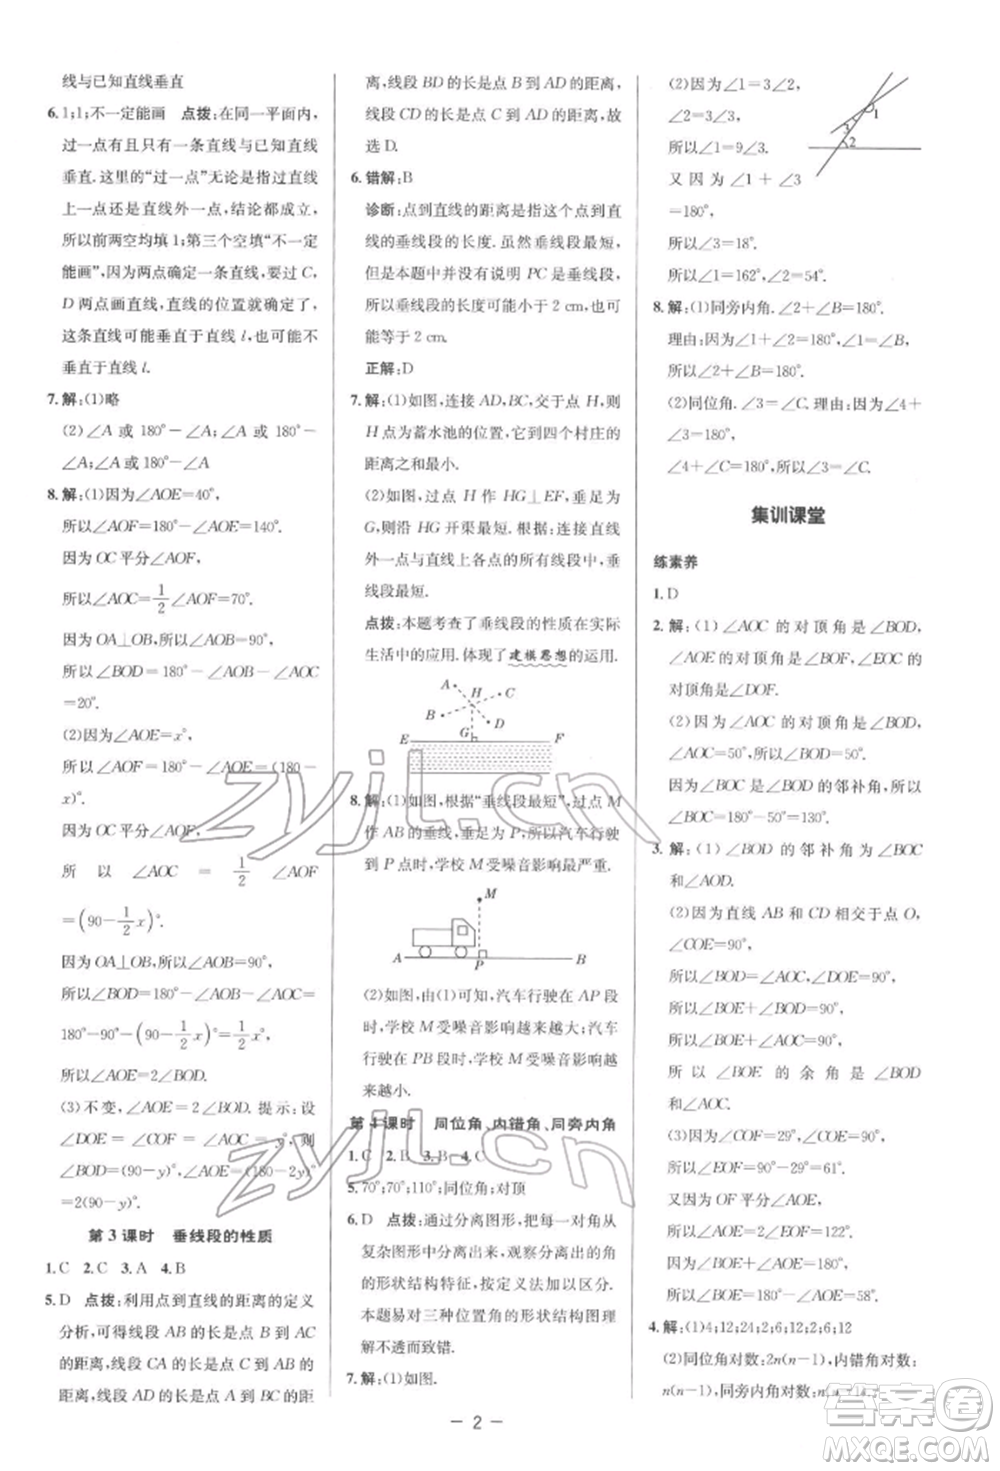 线与已知直线垂直
6. 1;1;不一定能画　点拨:在同一平面内,
过一点有且只有一条直线与已知直线
垂直.这里的“过一点”无论是指过直线
上一点还是直线外一点,结论都成立,
所以前两空均填1;第三个空填“不一定
能画”,因为两点确定一条直线,要过C,
D两点画直线,直线的位置就确定了,
这条直线可能垂直于直线l,也可能不
垂直于直线l.
7. 解:(1)略
(2)∠A或180°-∠A;∠A或180°-
∠A;∠A或180°-∠A
8. 解:(1)因为∠AOE=40°,
所以∠AOF=180°-∠AOE=140°.
因为OC平分∠AOF,
所以∠AOC=1/2∠AOF=70°.
因为OA⊥OB,所以∠AOB=90°,
所以∠BOD=180°-∠AOB-∠AOC
=20°.
(2)因为∠AOE=x°,
所以∠AOF=180°-∠AOE=(180-
x)°.
因为OC平分∠AOF,
所以∠AOC=1/2∠AOF
=(90-1/2x)°.
因为OA⊥OB,所以∠AOB=90°,
所以∠BOD=180°-∠AOB-∠AOC=
180°-90°-(90-1/2x)°=(1/2x)°,
所以∠AOE=2∠BOD.
(3)不变,∠AOE=2∠BOD.提示:设
∠DOE=∠COF=∠AOC=y°,则
∠BOD=(90-y)°,∠AOE=(180-2y)°=
2(90-y)°.
第3课时　垂线段的性质
1. C　2. C　3. A　4. B
5. D　点拨:利用点到直线的距离的定义
分析,可得线段AB的长是点B到AC
的距离,线段CA的长是点C到AB的
距离,线段AD的长是点A到BC的距
离,线段BD的长是点B到AD的距离,
线段CD的长是点C到AD的距离,故
选D.
6. 错解:B
诊断:点到直线的距离是指这个点到直
线的垂线段的长度.虽然垂线段最短,
但是本题中并没有说明PC是垂线段,
所以垂线段的长度可能小于2 cm,也可
能等于2 cm.
正解:D
7. 解:(1)如图,连接AD,BC,交于点H,则
H点为蓄水池的位置,它到四个村庄的
距离之和最小.
(2)如图,过点H作HG⊥EF,垂足为
G,则沿HG开渠最短.根据:连接直线
外一点与直线上各点的所有线段中,垂
线段最短.
点拨:本题考查了垂线段的性质在实际
生活中的应用.体现了建模思想的运用.
A
H
C
B
D
G
E
F
8. 解:(1)如图,根据“垂线段最短”,过点M
作AB的垂线,垂足为P,所以汽车行驶
到P点时,学校M受噪音影响最严重.
M
A
P
B
(2)如图,由(1)可知,汽车行驶在AP段
时,学校M受噪音影响越来越大;汽车
行驶在PB段时,学校M受噪音影响越
来越小.
第4课时　同位角、内错角、同旁内角
1. C　2. B　3. B　4. C
5. 70°;70°;110°;同位角;对顶
6. D　点拨:通过分离图形,把每一对角从
复杂图形中分离出来,观察分离出的角
的形状结构特征,按定义加以区分.
本题易对三种位置角的形状结构图理
解不透而致错.
7. 解:(1)如图.
(2)因为∠1=3∠2,
∠2=3∠3,
所以∠1=9∠3.
又因为∠1+∠3
=180°,
所以∠3=18°.
所以∠1=162°,∠2=54°.
1
3
2
8. 解:(1)同旁内角.∠2+∠B=180°.
理由:因为∠1+∠2=180°,∠1=∠B,
所以∠2+∠B=180°.
(2)同位角.∠3=∠C.理由:因为∠4+
∠3=180°,
∠4+∠C=180°,所以∠3=∠C.
集训课堂
练素养
1. D
2. 解:(1)∠AOC的对顶角是∠BOD,
∠AOE的对顶角是∠BOF,∠EOC的
对顶角是∠DOF.
(2)因为∠AOC的对顶角是∠BOD,
∠AOC=50°,所以∠BOD=50°.
因为∠BOC是∠BOD的邻补角,所以
∠BOC=180°-50°=130°.
3. 解:(1)∠BOD的邻补角为∠BOC
和∠AOD.
(2)因为直线AB和CD相交于点O,
∠COE=90°,
所以∠BOD=∠AOC,∠DOE=90°.
所以∠BOE+∠BOD=90°,
所以∠BOE+∠AOC=90°.
所以∠BOE的余角是∠BOD
和∠AOC.
(3)因为∠COF=29°,∠COE=90°,
所以∠EOF=90°-29°=61°.
又因为OF平分∠AOE,
所以∠AOE=2∠EOF=122°.
因为∠BOE+∠AOE=180°,
所以∠BOE=180°-∠AOE=58°.
4. 解:(1)4;12;24;2;6;12;2;6;12
(2)同位角对数:2n(n-1),内错角对数:
n(n-1),同旁内角对数:n(n-1).
— 2 —
zyjl.cn
zyjl.cn
答案圈
MXQE.COM